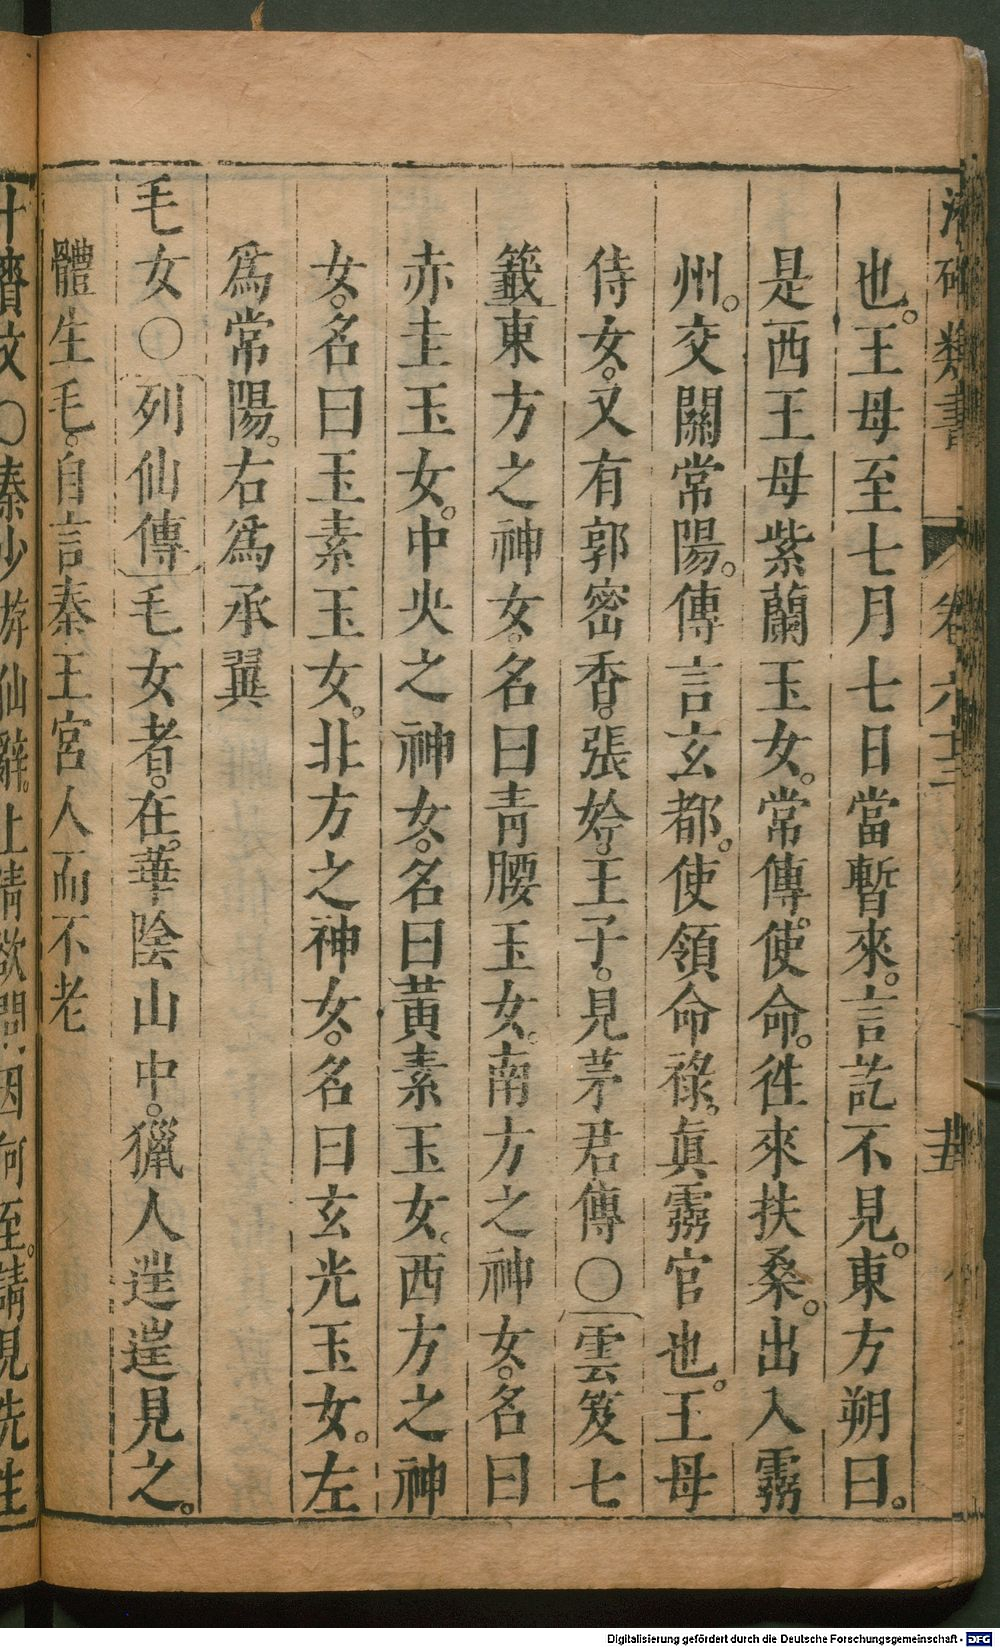 類書 卷六十三
也。王母至七月七日當暫來。言訖不見。東方朔曰。
是西王母紫蘭玉女。常傳使命。徃來扶桑。出入霛
州。交關常陽。傳言玄都。使領命祿。眞霛官也。王母
侍女。又有郭密香。張姈。王子。見茅君傳〇雲笈七
籤東方之神女。名曰青腰玉女。南方之神女。名曰
赤圭玉女。中央之神女。名曰黃素玉女。西方之神
女。名曰玉素玉女。北方之神女。名曰玄光玉女。左
爲常陽。右爲承翼
毛女〇列仙傳毛女者。在。華陰山中。獵人逞逞見之。
體生毛。自言秦王宮人而不老
〇秦少游仙辭。上清欲問因何至。請見先生
Digitalisierung gefördert durch die Deutsche Forschungsgemeinschaft - DFG